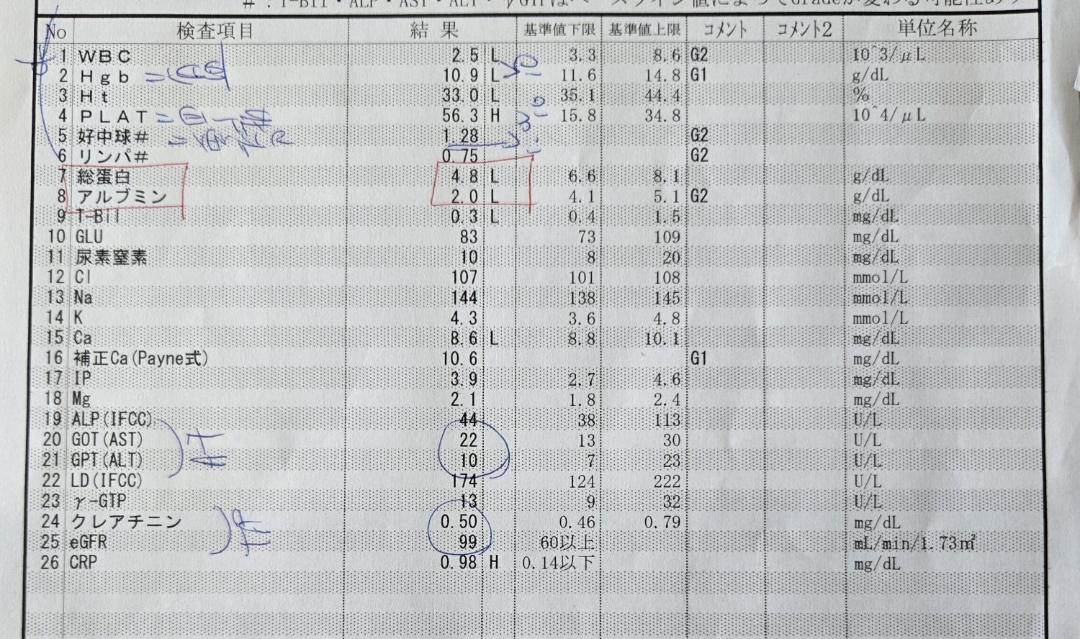 No 検査項目 結果 基準値下限 基準値上限 コメント コメント2 単位名称
1 WBC 2.5 L 3.3 8.6 G2 10^3/μL
2 Hgb 10.9 L 11.6 14.8 G1 g/dL
3 Ht 33.0 L 35.1 44.4 %
4 PLAT 56.3 H 15.8 34.8 10^4/μL
5 好中球# 1.28 G2
6 リンパ# 0.75 G2
7 総蛋白 4.8 L 6.6 8.1 g/dL
8 アルブミン 2.0 L 4.1 5.1 G2 g/dL
9 T-Bil 0.3 L 0.4 1.5 mg/dL
10 GLU 83 73 109 mg/dL
11 尿素窒素 10 8 20 mg/dL
12 Cl 107 101 108 mmol/L
13 Na 144 138 145 mmol/L
14 K 4.3 3.6 4.8 mmol/L
15 Ca 8.6 L 8.8 10.1 mg/dL
16 補正Ca(Payne式) 10.6 G1 mg/dL
17 IP 3.9 2.7 4.6 mg/dL
18 Mg 2.1 1.8 2.4 mg/dL
19 ALP(IFCC) 44 38 113 U/L
20 GOT(AST) 22 13 30 U/L
21 GPT(ALT) 10 7 23 U/L
22 LD(IFCC) 174 124 222 U/L
23 γ-GTP 13 9 32 U/L
24 クレアチニン 0.50 0.46 0.79 mg/dL
25 eGFR 99 60以上 mL/min/1.73㎡
26 CRP 0.98 H 0.14以下 mg/dL